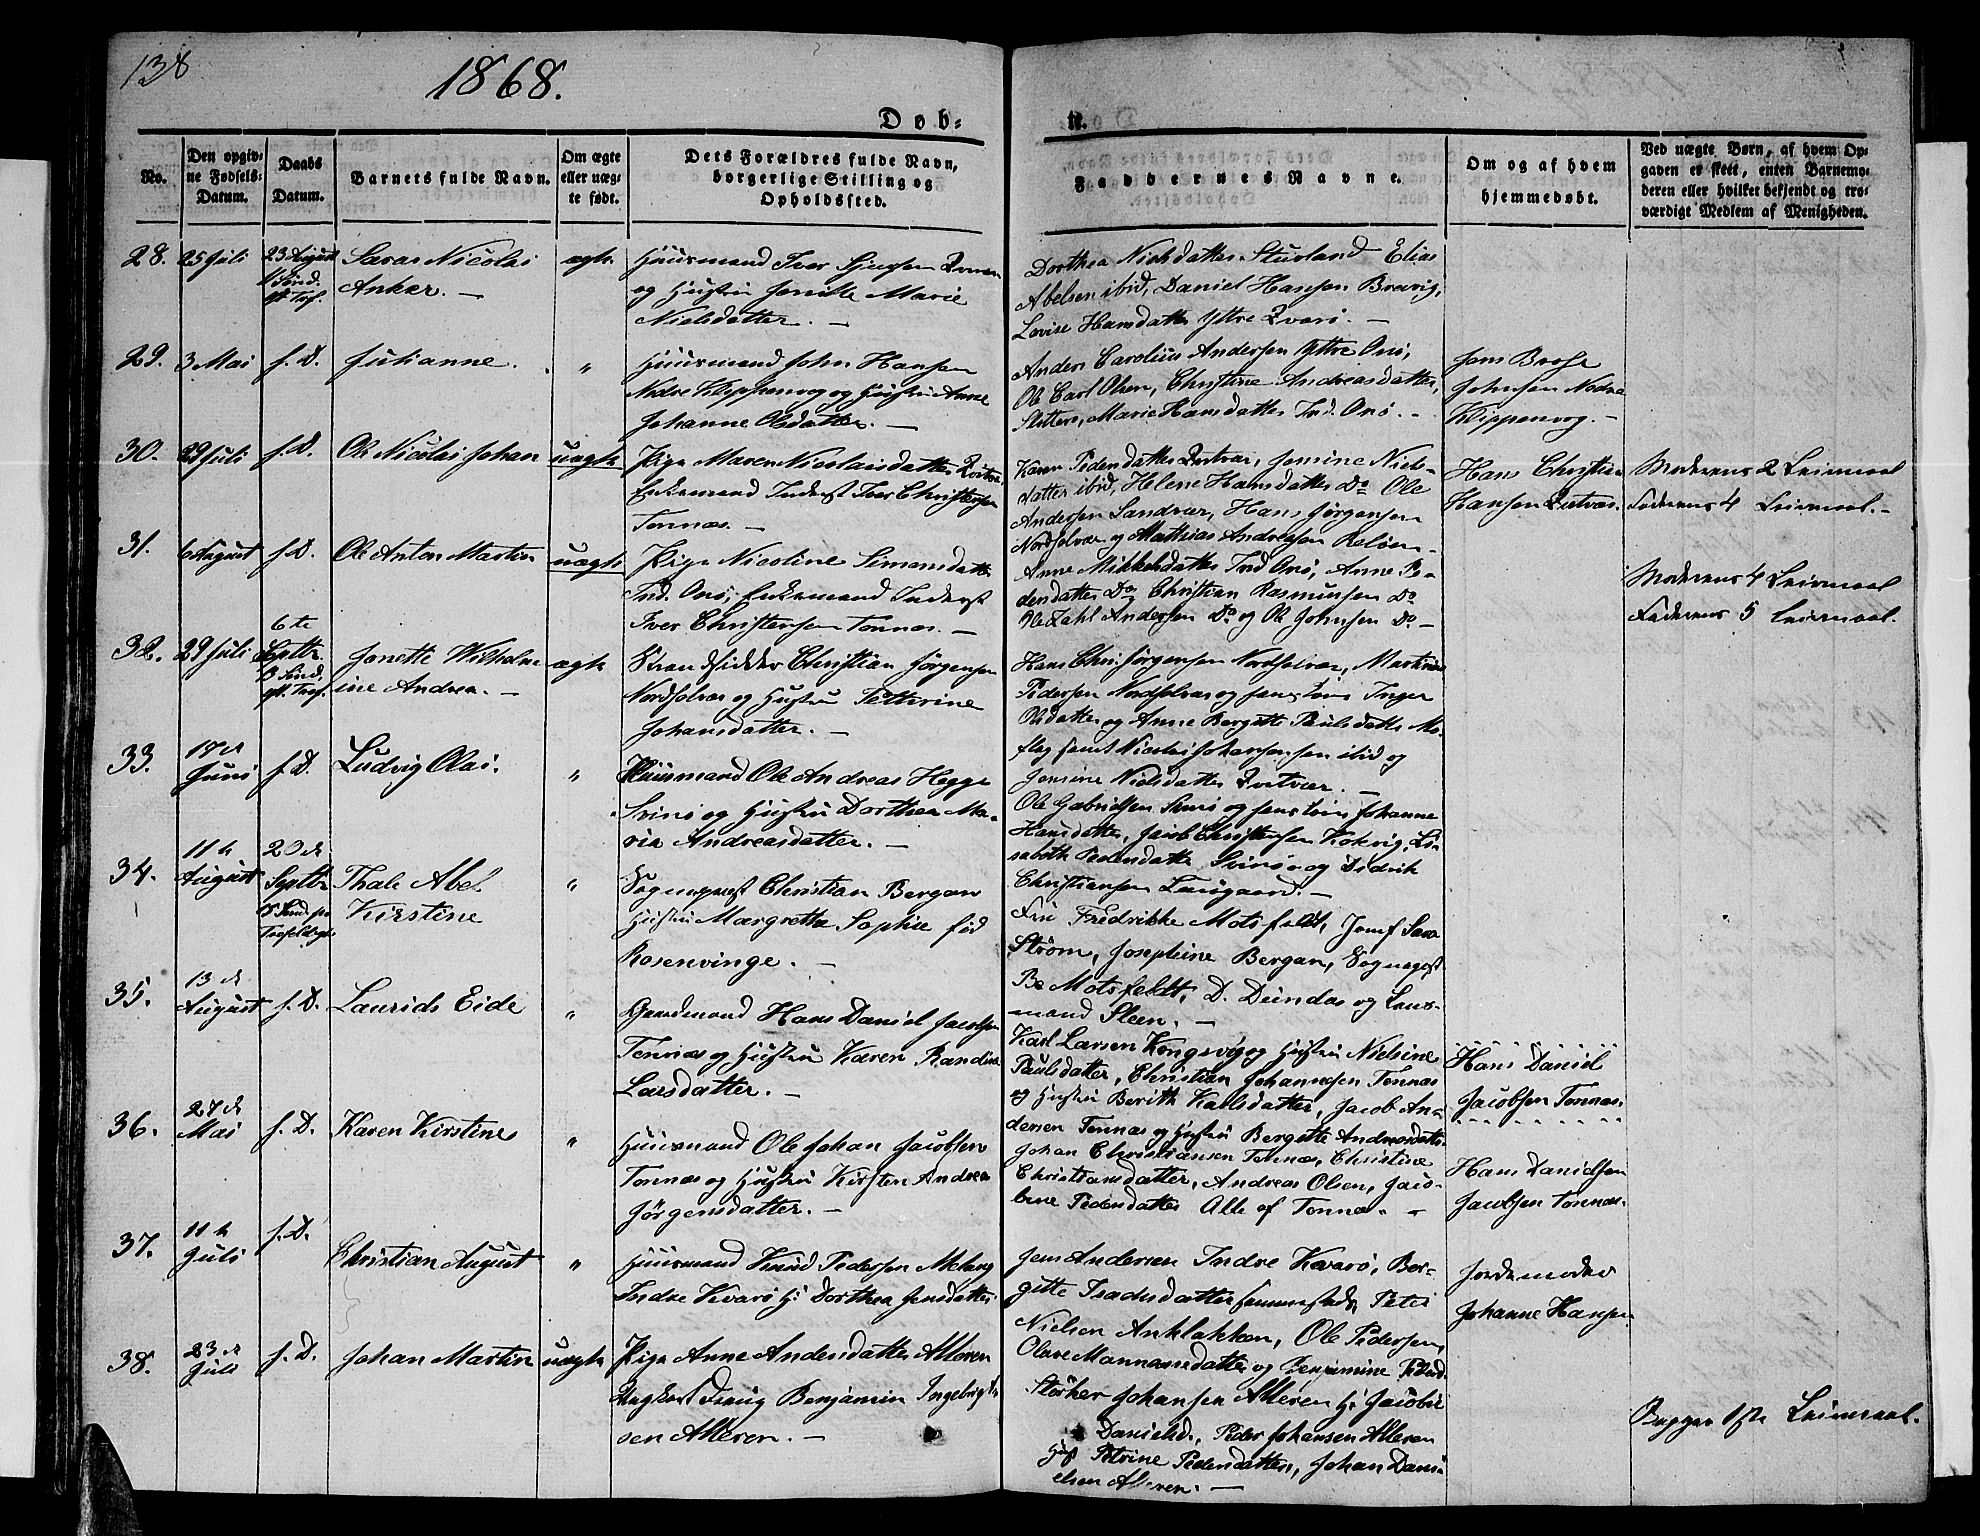 138
1868.
Døb-
n.
No.
Den opgiv-
ne Fødsels-
Datum.
Daabs
Datum.
Barnets fulde Navn.
Om ægte
eller uæg-
te født.
Dets Forældres fulde Navn,
borgerlige Stilling og
Opholdssted.
Faddernes Navne.
Om og af hvem
hjemmedøbt.
Ved uægte Børn, af hvem Op-
gaven er skeet, enten Barnemo-
deren eller hvilket bekjendt og tro-
værdigt Medlem af Menigheden.
28.
25 Juli
23 August
Søren Nicolai
Anker. —
ægte
Huusmand Iver
og Hustru Jonette Marie
Nielsdatter. —
Dorthea Nielsdatter Stuvland Elias
Abelsen ibid, Daniel Hansen Brevig,
Lovise Hansdatter Yttre Qvarø. —
29.
3 Mai
f. D.
Julianne.
"
Huusmand John Hansen
Nedre Klippenvog og Hustru Anne
Johanne Olsdatter. —
Anders Carolius Andersen Yttre Onø,
Ole Carl Olsen, Christine Andreasdatter,
Marie Hansdatter Ind. Onø. —
Jens
Johnsen Nedre
Klippenvog. —
30.
29 Juli
f. D.
Ole Nicolai Johan
uægte
Pige Maren Nicolaisdatter
Enkemand Inderst Iver Christensen
Tonnæs. —
Karen Pedersdatter Qvitvær, Jonsine Niels-
datter ibid, Helene Hansdatter Do Ole
Andersen Sandvær, Hans Jørgensen
Nordsolvær og Mathias Andersen
Hans Christian
Hansen
Moderens 2 Leiermaal
Faderens 4 Leiermaal. —
31.
6 August
f. D.
Ole Anton Martin
uægte
Pige Nicoline Simonsdatter
Ind. Onø, Enkemand Inderst
Iver Christensen Tonnæs. —
Anne Mikkelsdatter Ind Onø, Anne Pe-
dersdatter Do Christian Rasmussen Do
Ole Zahl Andersen Do og Ole Johnsen Do —
Moderens 4 Leiermaal
Faderens 5 Leiermaal.
32.
29 Juli
6te
Septbr
Jonette Wilhelm-
ine Andrea. —
ægte
Strandsidder Christian Jørgensen
Nordsolvær og Hustru Petterine
Johansdatter. —
Hans Chr. Jørgensen Nordsolvær,
Pedersen Nordsolvær og Jomfru Inger
Olsdatter og Anne Bergitte Paulsdatter Mo-
flag samt Nicolai Johannesen ibid og
Jonsine Nielsdatter Qvitvær. —
33.
17de
Juni
f. D.
Ludvig Olai.
"
Huusmand Ole Andreas Hegge
Svinø og Hustru Dorthea Ma-
ria Andreasdatter. —
Ole Gabrielsen og Johanne
Hansdatter, Jacob Christensen Kokvig, Li-
sabeth Pedersdatter Svinø og Didrik
Christiansen
34.
11te
August
20de
Septbr
Thale Abel
Kirstine
"
Sognepræst Christian Bergan
Hustru Margretha Sophie fød
Rosenvinge. —
Fru Fredrikke Motsfeldt, Jomf Sara
Strøm, Josephine Bergan, Sognepræst
Motsfeldt, D. Dundas og Lens-
mand Steen. —
35.
13de
August
f. D.
Laurids Eide
"
Gaardmand Hans Daniel Jacobsen
Tonnæs og Hustru Karen Randine
Larsdatter. —
Karl Larsen Kongsvig og Hustru Nielsine
Paulsdatter, Christian Johannesen Tonnæs
og Hustru Berith Karlsdatter, Jacob An-
dersen Tonnæs og Hustru Bergitte Andreasdatter
Hans Daniel
Jacobsen Tonnæs.
36.
27de
Mai
f. D.
Karen Kirstine
"
Huusmand Ole Johan Jacobsen
Tonnæs og Hustru Kirsten Andrea
Jørgensdatter. —
Johan Christiansen Tonnæs, Christine
Christiansdatter, Andreas Olsen, Jaco-
bine Pedersdatter Alle af Tonnæs. —
Hans Danielsen
Jacobsen Tonnæs.
37.
11te
Juli
f. D.
Christian August
"
Huusmand Knud Pedersen Melang
Indre Kvarø H: Dorthea Jensdatter.
Jens Andersen Indre Kvarø, Ber-
gitte Isachsdatter sammesteds, Peter
Nielsen Anklakken, Ole Pedersen,
Jordemoder
Johanne Hansen
38.
23de
Juli
f. D.
Johan Martin
uægte
Pige Anne Andersdatter Alderen
Ungkarl Benjamin Ingebrigt-
sen Alderen. —
og Benjamine
Johansen Alderen H: Jacobine
Danielsd. Peder Johansen Alderen
Hust Petrine Pedersdatter, Johan Dani-
elsen Alderen. —
Begges 1ste Leiermaal.